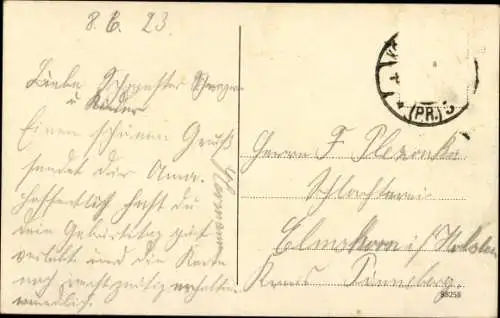 8. 6. 23
Liebe Schwester Schwager
u Kinder
Einen schönen Gruß
sendet dir Anna.
Hoffentlich hast du
dein Geburtstag gut
verlebt und die Karte
noch rechtzeitig erhalten
Hermann
(PR.)
Herrn F
Schlachterei
Elmshorn i/Holstein
Kreis Pinneberg.
98258